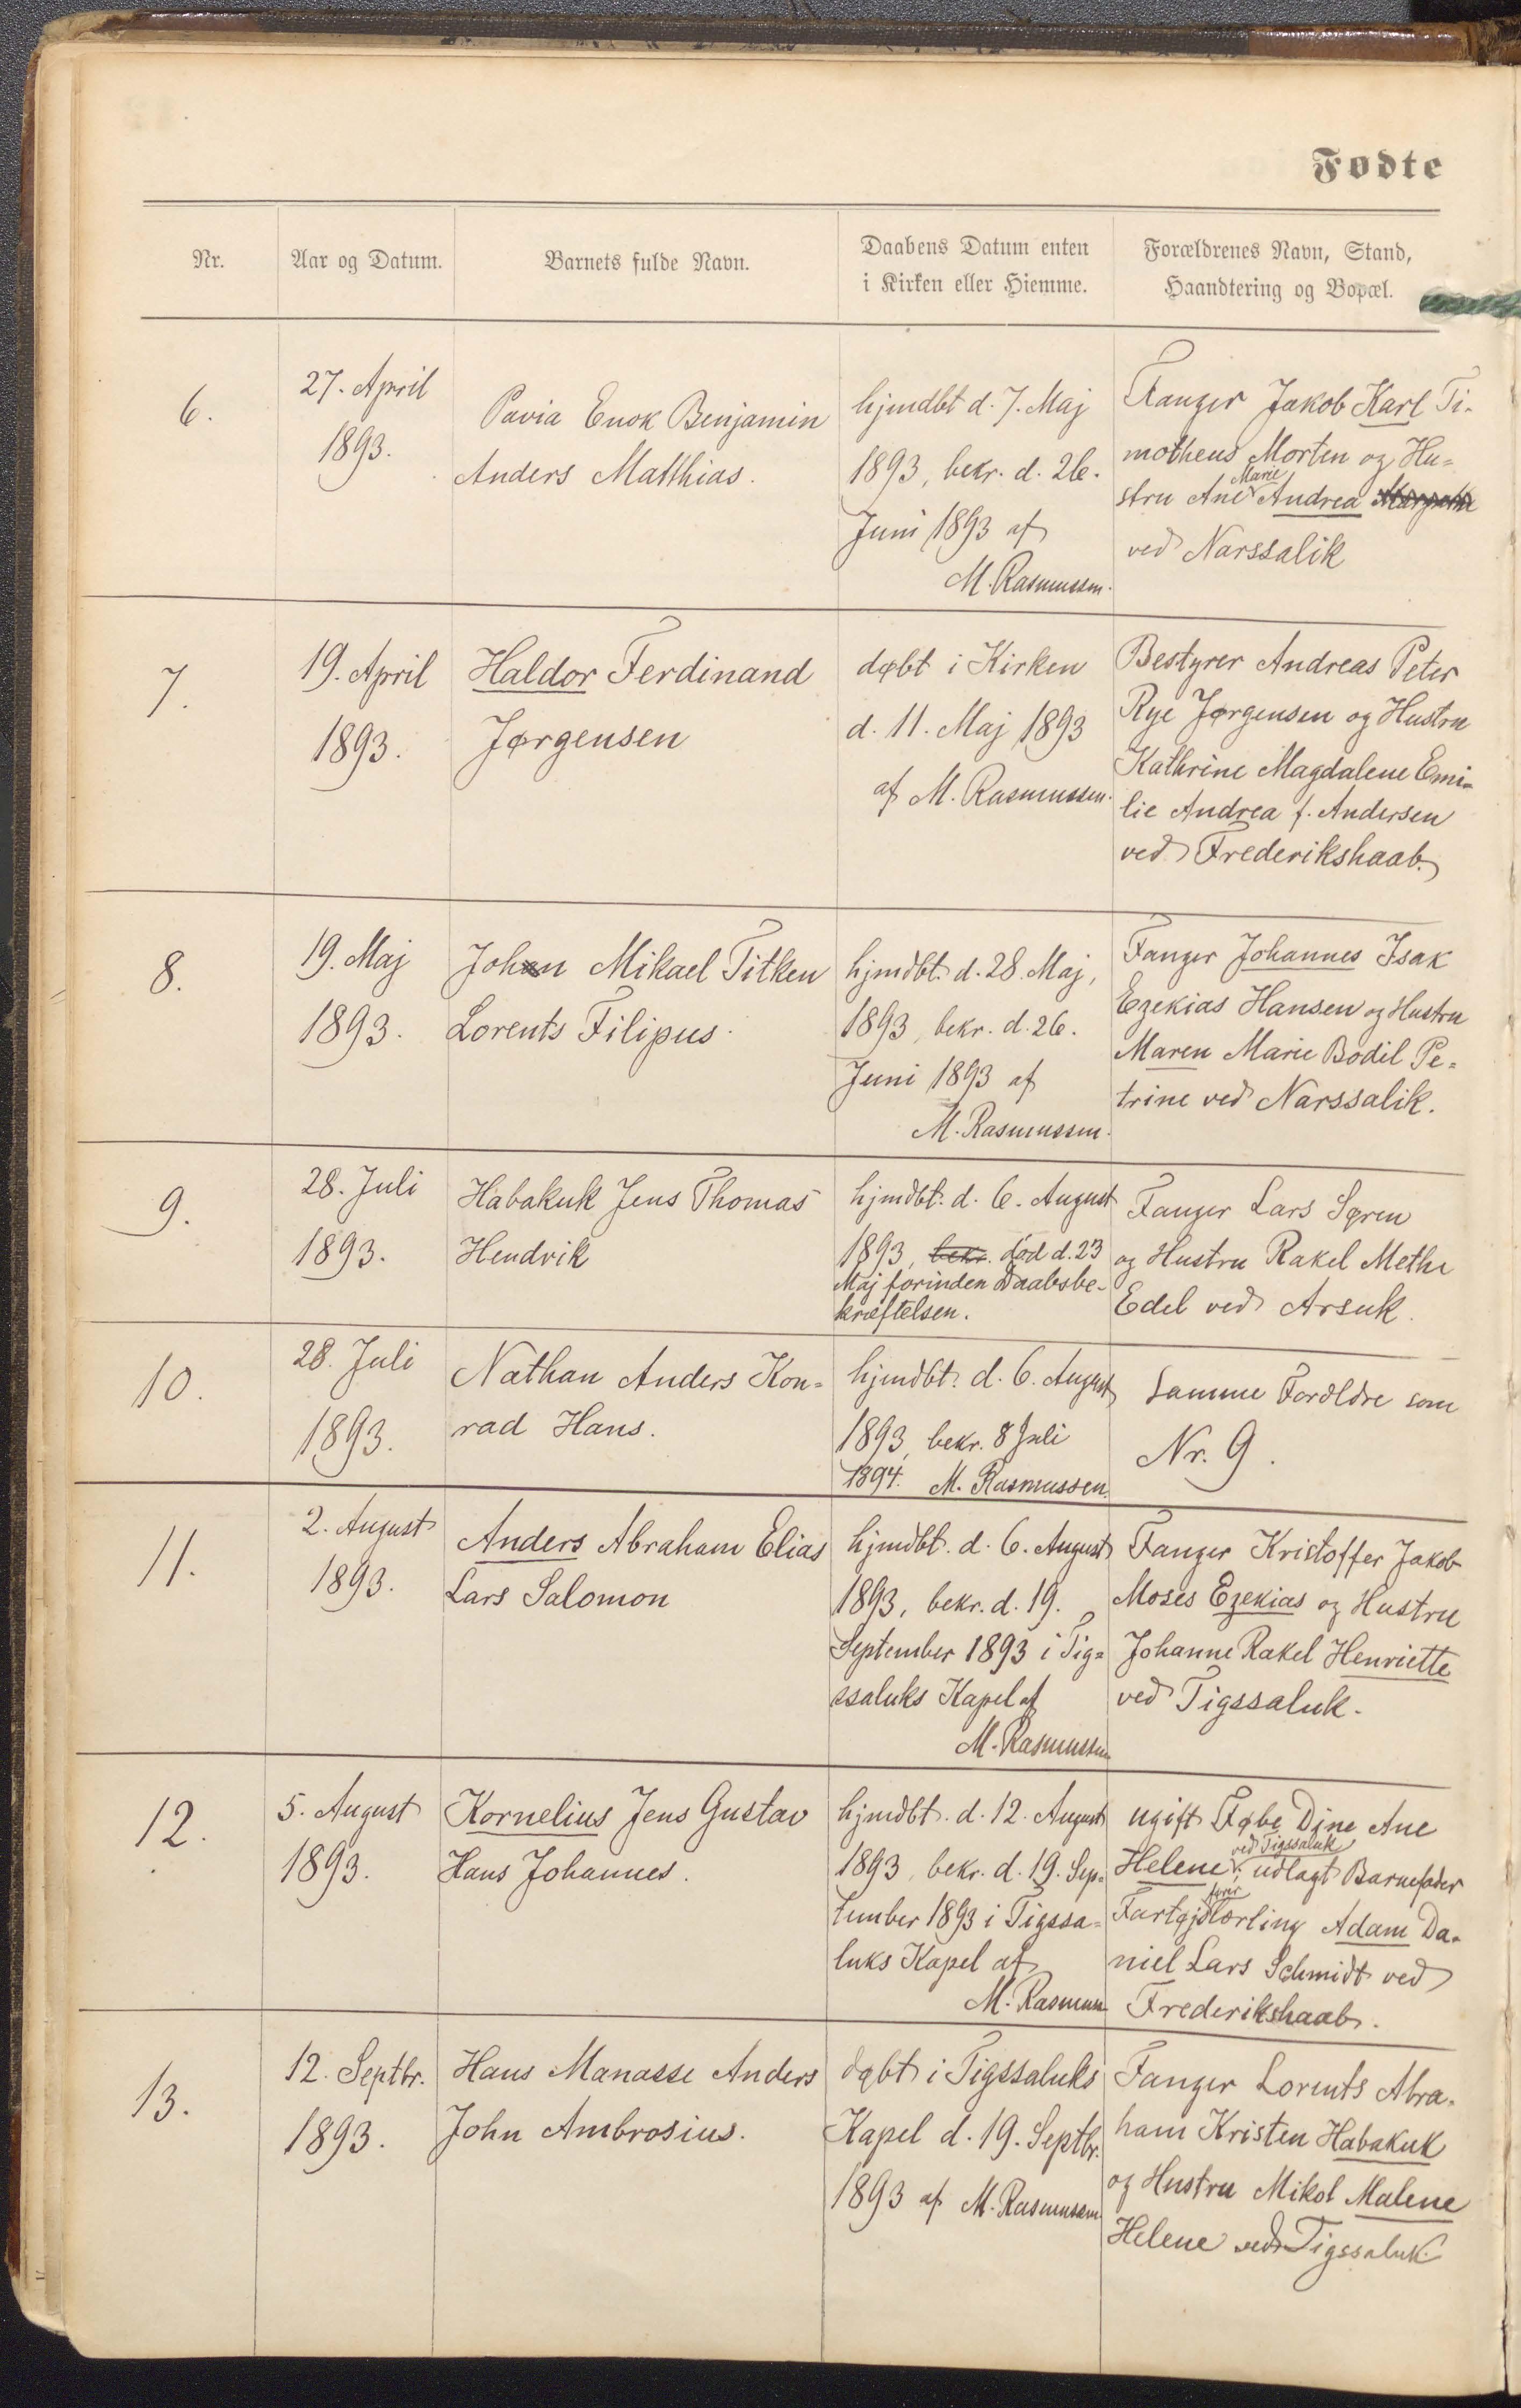 Fødte
Nr.
Aar og Datum.
Barnets fulde Navn.
Daabens Datum enten
i Kirken eller Hiemme.
Forældrenes Navn, Stand,
Haandtering og Bopæl.
6.
27. April
1893.
Pavia Enok Benjamin
Anders Matthias.
hjmdbt d. 7. Maj
1893, bekr. d. 26.
Juni 1893 af
M. Rasmussen.
Fanger Jakob Karl Ti-
motheus Morten og Hu-
stru Ane Marie Andrea
ved Narssalik
7.
19. April
1893.
Haldor Ferdinand
Jørgensen
døbt i Kirken
d. 11. Maj 1893
af M. Rasmussen.
Bestyrer Andreas Peter
Rye Jørgensen og Hustru
Kathrine Magdalene Emi-
lie Andrea f. Andersen
ved Frederikshaab.
8.
19. Maj
1893.
John Mikael Titken
Lorents Filipus.
hjmdbt. d. 28. Maj,
1893, bekr. d. 26.
Juni 1893 af
M. Rasmussen.
Fanger Johannes Isak
Ezekias Hansen og Hustru
Maren Marie Bodil Pe-
trine ved Narssalik.
9.
28. Juli
1893.
Habakuk Jens Thomas
Hendrik
hjmdbt. d. 6. August
1893, bekr. død d. 23
Maj forinden Daabsbe-
kræftelsen.
Fanger Lars Søren
og Hustru Rakel Methe
Edel ved Arsuk.
10.
28. Juli
1893.
Nathan Anders Kon-
rad Hans.
hjmdbt. d. 6. August
1893, bekr. 8 Juli
1894. M. Rasmussen.
Samme Forældre som
Nr. 9.
11.
2. August
1893.
Anders Abraham Elias
Lars Salomon
hjmdbt. d. 6. August
1893, bekr. d. 19.
September 1893 i Tig-
ssaluks Kapel af
M. Rasmussen
Fanger Kristoffer Jakob
Moses Ezekias og Hustru
Johanne Rakel Henriette
ved Tigssaluk.
12.
5. August
1893.
Kornelius Jens Gustav
Hans Johannes.
hjmdbt. d. 12. August
1893, bekr. d. 19. Sep-
tember 1893 i Tigssa-
luks Kapel af
M. Rasmussen
ugift Føbe Dine Ane
Helene ved Tigssaluk; udlagt Barnefader
Fartøjførerlærling Adam Da-
niel Lars Schmidt ved
Frederikshaab.
13.
12. Septbr.
1893.
Hans Manasse Anders
John Ambrosius.
døbt i Tigssaluks
Kapel d. 19. Septbr.
1893 af M. Rasmussen
Fanger Lorents Abra-
ham Kristen Habakuk
og Hustru Mikol Malene
Helene ved Tigssaluk.